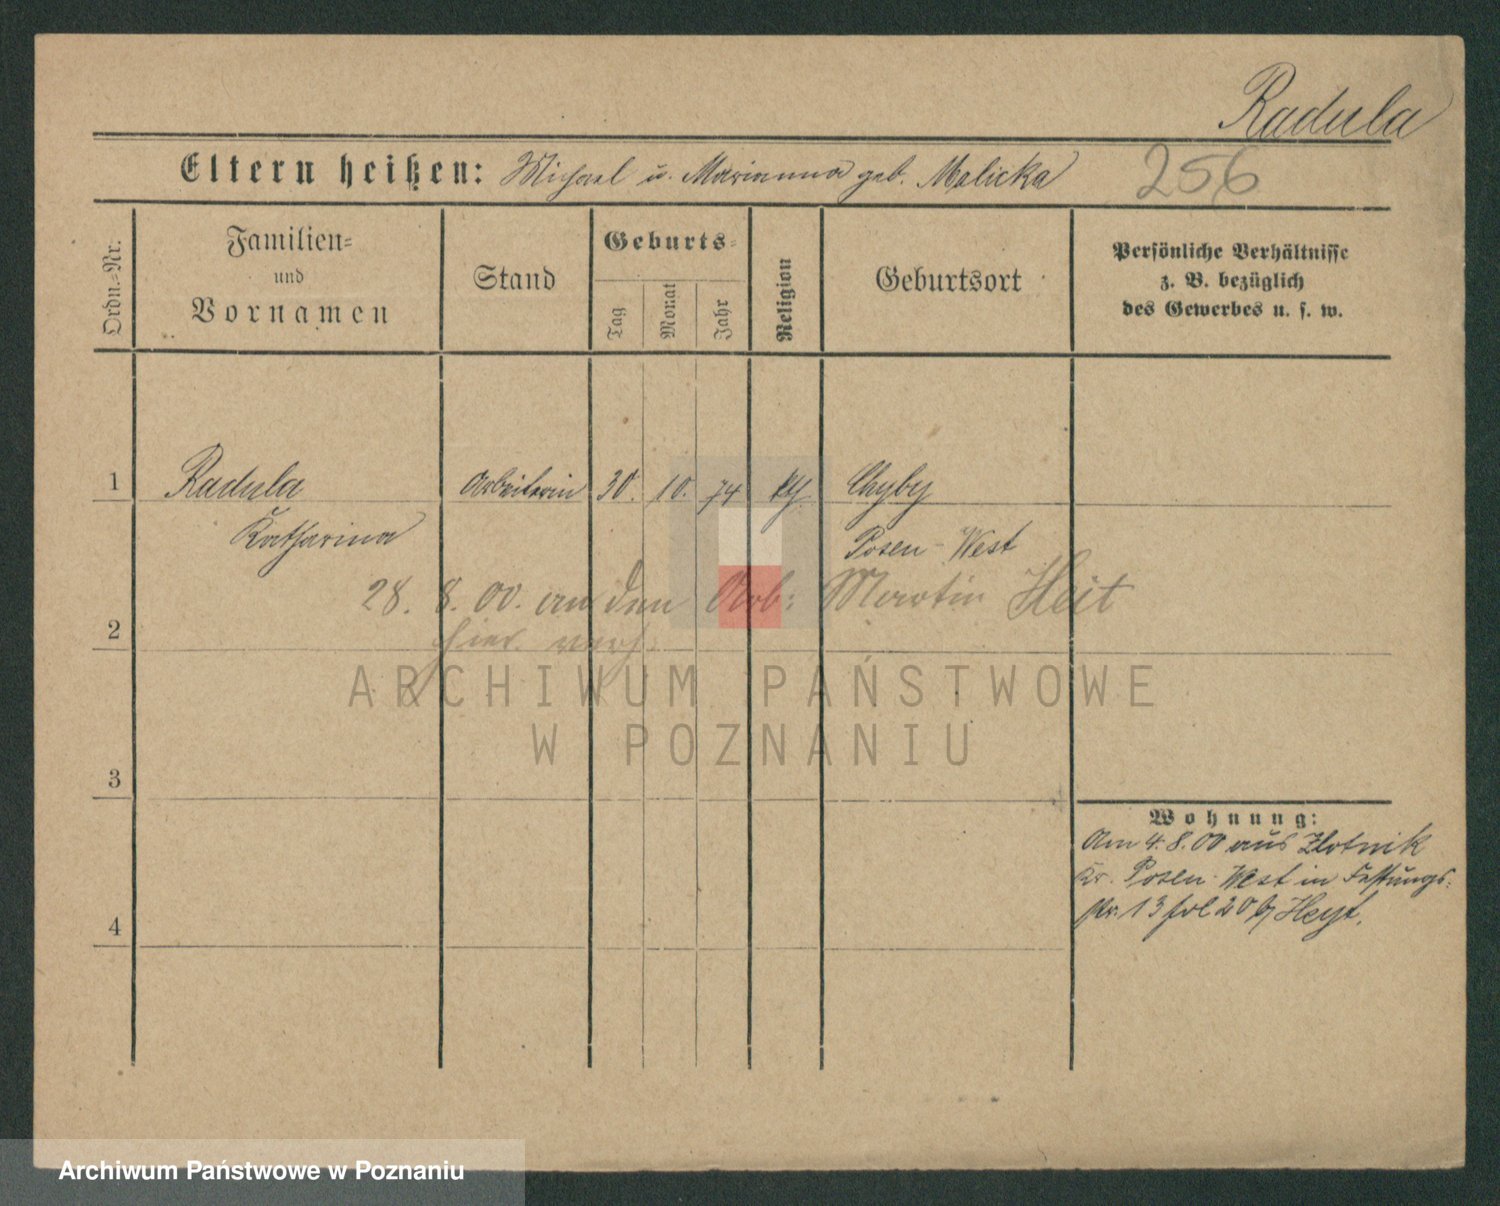 Radula
Eltern heißen: Michael u. Marianna geb. Malicka 256
Ordn.-Nr.
Familien-
und
Vornamen
Stand
Geburts-
Tag
Monat
Jahr
Religion
Geburtsort
Persönliche Verhältnisse
z. B. bezüglich
des Gewerbes u. s. w.
1 Radula Arbeiterin 30. 10. 74 kth. Chyby
Katharina Posen-West
28. 8. 00. an den Arb: Martin Heit
2 hier verh.
ARCHIWUM PAŃSTWOWE
W POZNANIU
3
Wohnung:
Am 4.8.00 aus Zlotnik
Kr. Posen-West in Festungs-
13 20 Heyt.
4
Archiwum Państwowe w Poznaniu